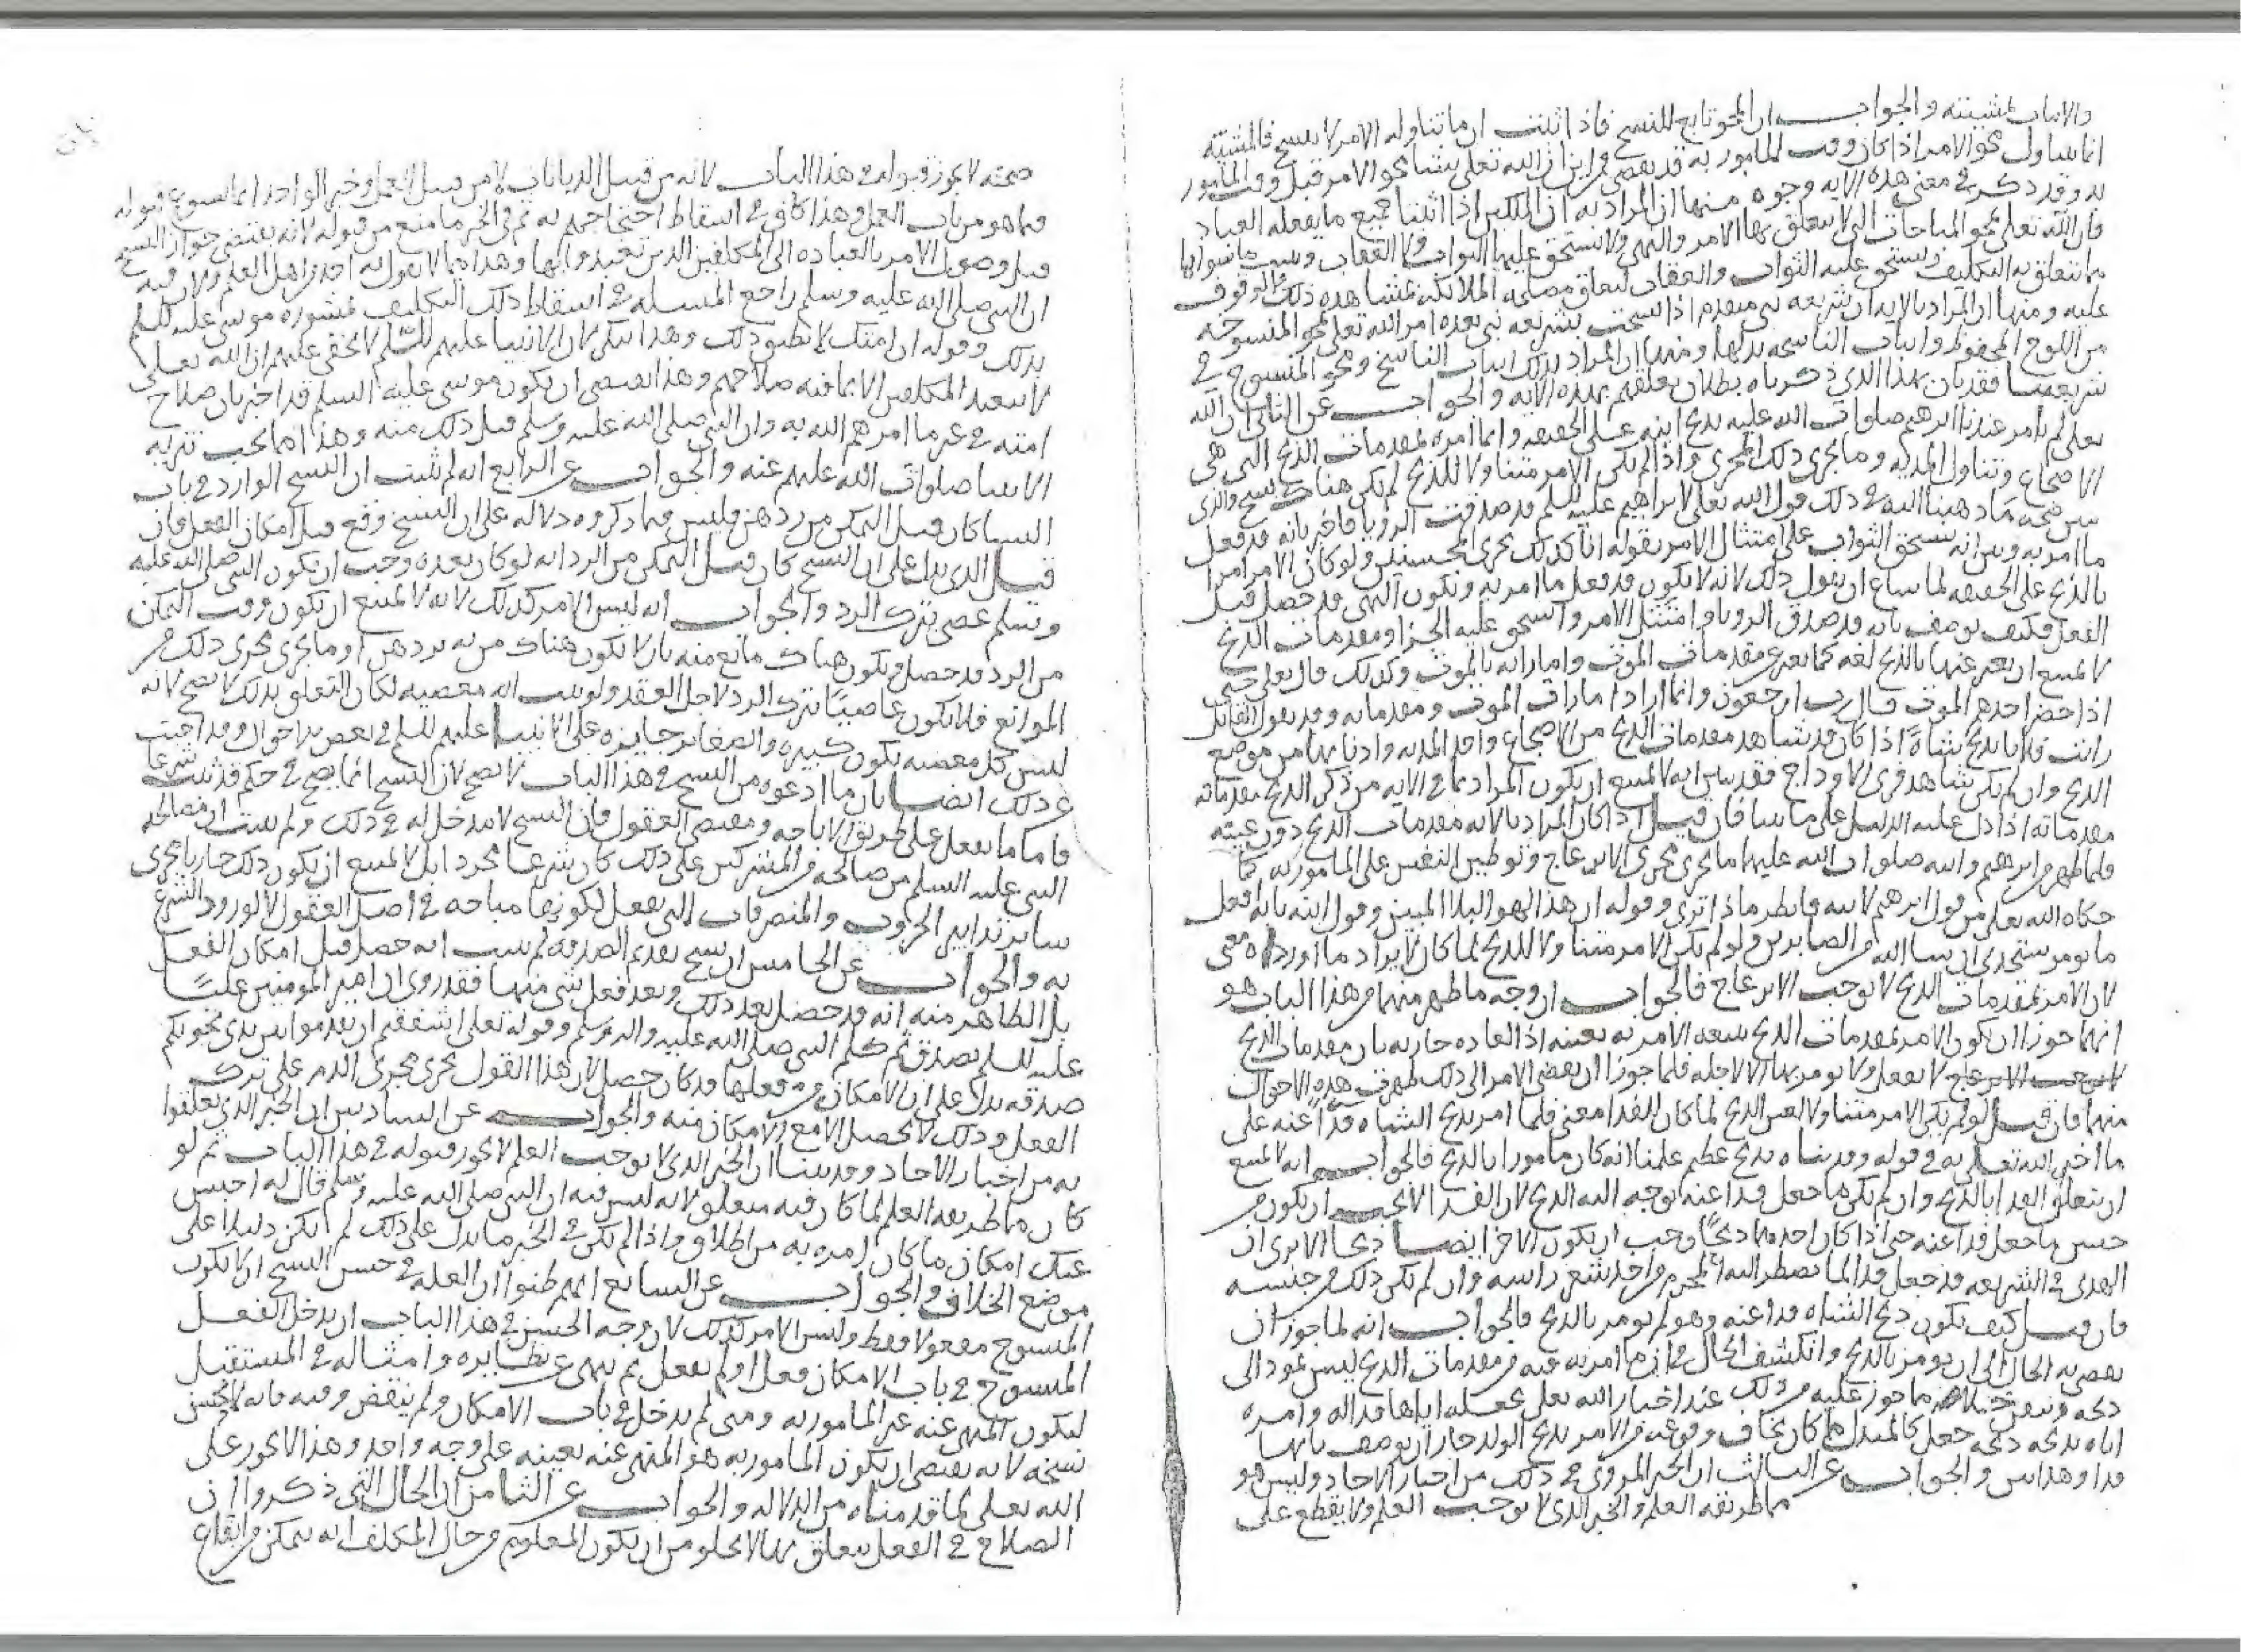 والاثبات لمشيئته والجواب ان المحو تابع للنسخ فاذا ثبت ان ما تناوله الامر لا ينسخ فالمشيئة
انما يتناول محو الامر اذا كان وقت المأمور به قد تقضى فمن اين ان الله تعلى يشا محو الامر قبل وقت المأمور
به وقد ذكر في معنى هذه الايه وجوه منها ان المراد به ان الملكين اذا اثبتا جميع ما يفعله العباد
فان الله تعلى يمحو المباحات التي لا يتعلق بها الامر والنهي ولا يستحق عليها الثواب ولا العقاب ويثبت ما سواها
مما يتعلق به التكليف ويستحق عليه الثواب والعقاب لتعلق مصلحه الملائكه بمشاهده ذلك والوقوف
عليه ومنها ان المراد بالايه ان شريعه نبي متقدم اذا نسخت بشريعه نبي بعده امر الله تعلى بمحو المنسوخه
من اللوح المحفوظ واثبات الناسخه بدلها ومنها ان المراد بذلك اثبات الناسخ ومحو المنسوخ في
شريعتنا فقد بان بهذا الذي ذكرناه بطلان تعلقهم بهذه الايه والجواب عن الثاني ان الله
تعلى لم يامر عندنا ابرهيم صلوات الله عليه بذبح ابنه على الحقيقه وانما امره بمقدمات الذبح التي هي
الاضجاع وتناول المديه وما يجري ذلك المجرى واذا لم يكن الامر متناولا للذبح لم يكن هناك نسخ والذي
يبين صحه ما ذهبنا اليه في ذلك قول الله تعلى لابراهيم عليه السلم قد صدقت الرويا فاخبر بانه قد فعل
ما امر به وبين انه يستحق الثواب على امتثال الامر بقوله انا كذلك نجزي المحسنين ولو كان الامر امرا
بالذبح على الحقيقه لما ساغ ان يقول ذلك لانه لا يكون قد فعل ما امر به ويكون النهي قد حصل قبل
الفعل فكيف يوصف بانه قد صدق الرويا وامتثل الامر واستحق عليه الجزا ومقدمات الذبح
لا يمتنع ان يعبر عنها بالذبح لغه كما يعبر عن مقدمات الموت واماراته بالموت وكذلك قال تعلى حتى
اذا حضر احدهم الموت قال رب ارجعون وانما اراد امارات الموت ومقدماته وقد يقول القائل
رايت فلانا يذبح شاة اذا كان قد شاهد مقدمات الذبح من الاضجاع واخذ المديه وادنايها من موضع
الذبح وان لم يكن شاهد فري الاوداج فقد بين انه لا يمتنع ان يكون المراد بما في الايه من ذكر الذبح مقدماته
مقدماته اذا دل عليه الدليل على ما بينا فان قيل اذا كان المراد بالايه مقدمات الذبح دون عينه
فلما ظهر من ابرهيم وابنه صلوات الله عليهما ما يجري مجرى الانزعاج وتوطين النفس على المامور به كما
حكاه الله تعلى من قول ابرهيم لابنه فانظر ماذا ترى وقوله ان هذا لهو البلا المبين وقول ابنه يا ابه افعل
ما تومر ستجدني ان شا الله من الصابرين ولو لم يكن الامر متناولا للذبح لما كان لايراد ما اورداه معنى
لان الامر بمقدمات الذبح لا توجب الانزعاج فالجواب ان وجه ما ظهر منهما من هذا الباب هو
انهما جوزا ان يكون الامر بمقدمات الذبح يتبعه الامر به بعينه اذ العاده جاريه بان مقدمات الذبح
لا يفعل ولا يومر بها الا لاجله فلما جوزا ان يفضي الامر الى ذلك ظهرت هذه الاحوال
منهما فان قيل لو لم يكن الامر متناولا لعين الذبح لما كان للفدا معنى فلما امر بذبح الشاه فداً عنه على
ما اخبر الله تعلى به في قوله وفديناه بذبح عظيم علمنا انه كان مامورا بالذبح فالجواب انه لا يمتنع
ان يتعلق الفدا بالذبح وان لم يكن ما جعل فدا عنه توجه اليه الذبح لان الفدا لا يجب ان يكون من
جنس ما جعل فدا عنه حتى اذا كان احدهما ذبحاً وجب ان يكون الاخر ايضا ذبحا الا ترى ان
الهدي في الشريعه قد جعل فدا لما يضطر اليه المحرم من اخذ شعر راسه وان لم يكن ذلك من جنسه
فان قيل كيف يكون ذبح الشاه فدا عنه وهو لم يومر بالذبح فالجواب انه لما جوز ان
يفضي به الحال الى ان يومر بالذبح وانكشف الحال من ان ما امر به فيه من مقدمات الذبح ليس يمود الى
ذبحه ما جوز عليه من ذلك عند اخبار الله تعلى بجعله اياها فدا له وامره
اياه بذبحه جعل كالمبدل مما كان يخاف وقوعه من الامر بذبح الولد جاز ان يوصف بانها
فدا وهذا بين والجواب عن الثالث ان الخبر المروي في ذلك من اخبار الاحاد وليس هو
مما طريقه العلم والخبر الذي لا يوجب العلم ولا يقطع على
صحته لا يجوز قبوله في هذا الباب لانه من قبيل الديانات لا من قبيل العمل وخبر الواحد انما يسوغ قبوله
فيما هو من باب العمل وهذا كاف في اسقاط احتجاجهم به ثم في الخبر ما منع من قبوله لانه يقتضي جواز النسخ
قبل وصول الامر بالعباده الى المكلفين الذين تعبدوا بها وهذا مما لا يقول به احد من اهل العلم ولان فيه
ان النبي صلى الله عليه وسلم راجع المسله في اسقاط ذلك التكليف بمشوره موسى عليه السلم
بذلك وقوله ان امتك لا تطيق ذلك وهذا منكر لان الانبيا عليهم السلم لا يخفى عليهم ان الله تعلى
لا يتعبد المكلفين الا بما فيه صلاحهم وهذا يقتضي ان يكون موسى عليه السلم قد اخبر بان صلاح
امته في غير ما امرهم الله به وان النبي صلى الله عليه وسلم قبل ذلك منه وهذا مما يجب تنزيه
الانبيا صلوات الله عليهم عنه والجواب عن الرابع انه لم يثبت ان النسخ الوارد في باب
النسا كان قبل التمكن من ردهن وليس فيما ذكروه دلاله على ان النسخ وقع قبل امكان الفعل فان
قيل الذي يدل على ان النسخ كان قبل التمكن من الرد انه لو كان بعده وجب ان يكون النبي صلى الله عليه
وسلم عصى بترك الرد والجواب انه ليس الامر كذلك لانه لا يمتنع ان يكون وقت التمكن
من الرد قد حصل ويكون هناك مانع منه بان لا يكون هناك من به يردهن او ما يجري مجرى ذلك من
الموانع فلا يكون عاصيًا بترك الرد لاجل العقد ولو ثبت انه معصيه لكان التعلق بذلك لا يصح لانه
ليس كل معصيه يكون كبيره والصغاير جايزه على الانبيا عليهم السلم في بعض الاحوال وقد اجبت
عن ذلك ايضا بان ما ادعوه من النسخ في هذا الباب لا يصح لان النسخ انما يصح في حكم قد ثبت شرعا
فاما ما يفعل على طريق الاباحه ومقتضى العقول فان النسخ لا مدخل له في ذلك ولم يثبت ان مصالحه
النبي عليه السلم من صالحه من المشركين على ذلك كان شرعا مجردا بل لا يمتنع ان يكون ذلك جاريا مجرى
ساير تدابير الحروب والمتصرفات التي تفعل لكونها مباحه في اصل العقول لا لورود الشرع
به والجواب عن الخامس ان نسخ تقديم الصدقه لم يثبت انه حصل قبل امكان الفعل
بل الظاهر منه انه قد حصل بعد ذلك وبعد فعل شي منها فقد روي ان امير المومنين عليًا
عليه السلم تصدق ثم كلم النبي صلى الله عليه واله وسلم وقوله تعلى ااشفقتم ان تقدموا بين يدي نجويكم
صدقه يدل على ان الامكان من فعلها قد كان حصل لان هذا القول يجري مجرى الذم على ترك
الفعل وذلك لا يحصل الا مع الامكان منه والجواب عن السادس ان الخبر الذي تعلقوا
به من اخبار الاحاد وقد بينا ان الخبر الذي لا يوجب العلم لا يجوز قبوله في هذا الباب ثم لو
كان مما طريقه العلم لما كان فيه متعلق لانه ليس فيه ان النبي صلى الله عليه وسلم قال له احبس
عنك امكان ما كان امره به من اطلاق واذا لم يكن في الخبر ما يدل على ذلك لم يكن دليلا على
موضع الخلاف والجواب عن السابع انهم ظنوا ان العله في حسن النسخ ان لا يكون
المنسوخ مفعولا فقط وليس الامر كذلك لان وجه الحسن في هذا الباب ان يدخل الفعل
المنسوخ في باب الامكان فعل او لم يفعل ثم ينهى عن نظايره وامثاله في المستقبل
ليكون المنهي عنه غير المامور به ومتى لم يدخل في باب الامكان ولم ينقض وقته فانه لا يحسن
نسخه لانه يقتضي ان يكون المامور به هو المنهي عنه بعينه على وجه واحد وهذا لا يجوز على
الله تعلى لما قدمناه من الدلاله والجواب عن الثامن ان الحال التي ذكروا ان
الصلاح في الفعل يتعلق بها لا يخلو من ان يكون المعلوم من حال المكلف انه يتمكن من ايقاع